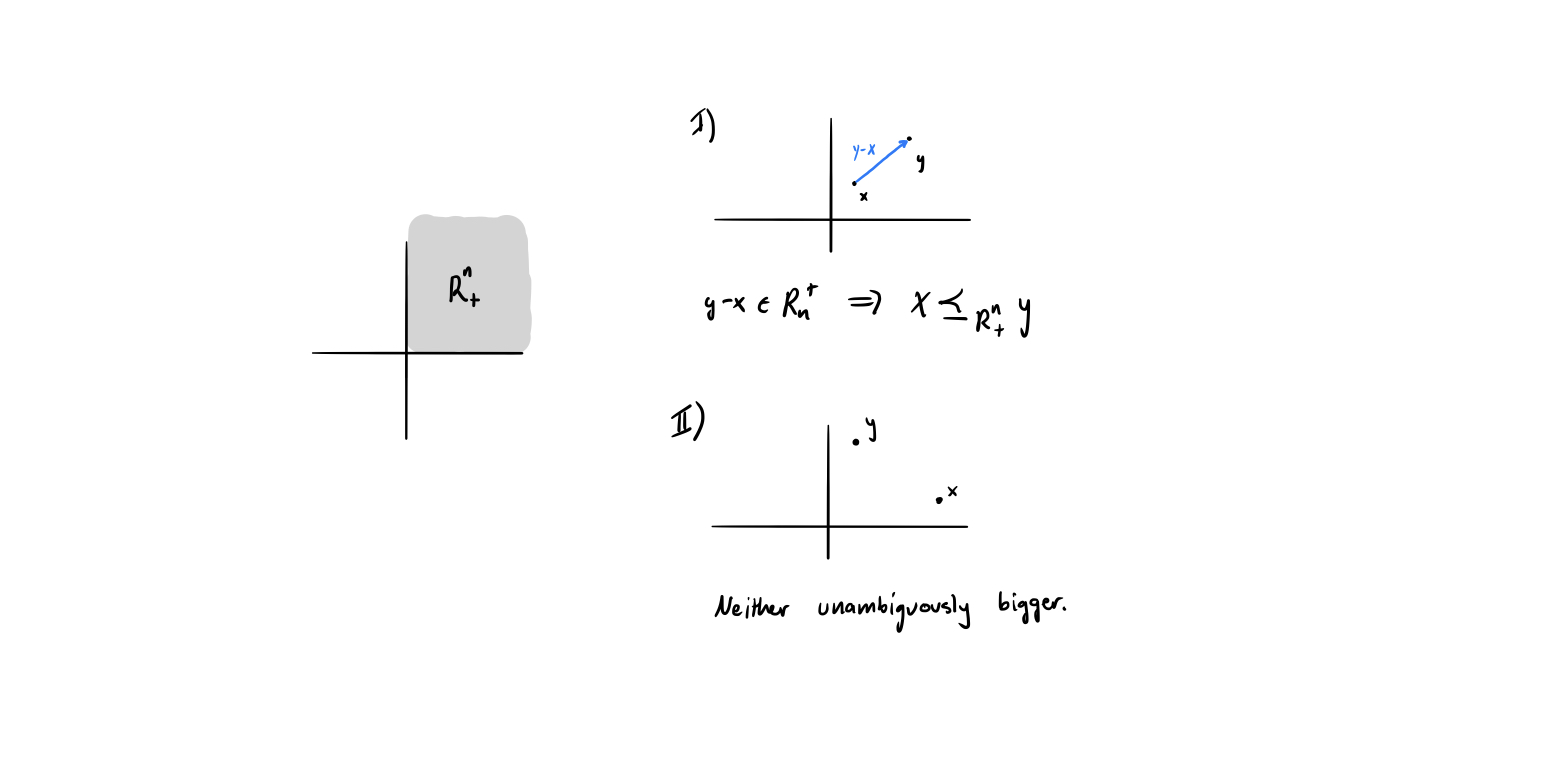 R^n_+
I)
y-x
y
x
y-x ∈ R^+_n ⟹ x ⪯_{R^n_+} y
II)
y
x
Neither unambiguously bigger.